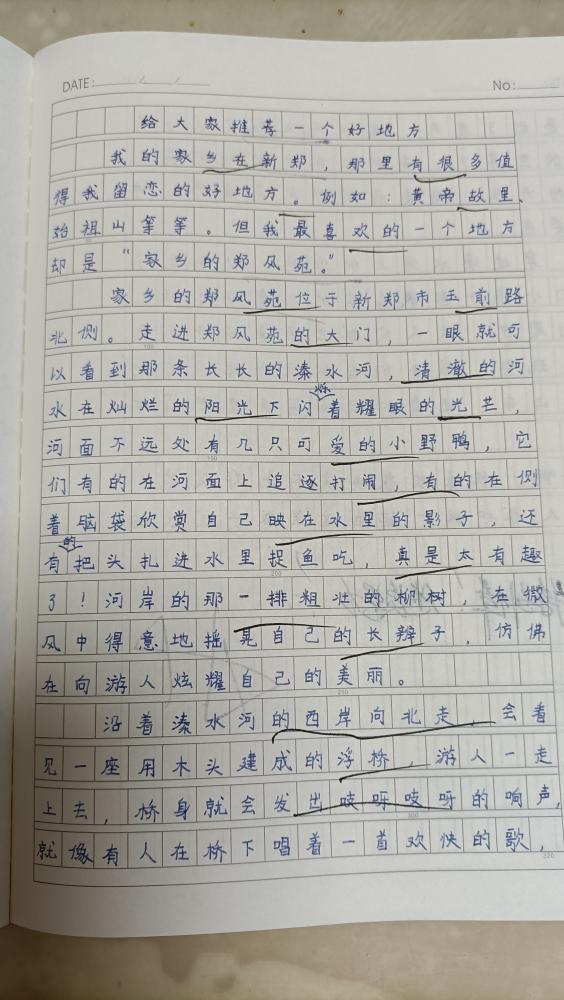 DATE: / / No:
给大家推荐一个好地方
我的家乡在新郑，那里有很多值
得我留恋的好地方。例如：黄帝故里、
始祖山等等。但我最喜欢的一个地方
却是“家乡的郑风苑。”
家乡的郑风苑位于新郑市玉前路
北侧。走进郑风苑的大门，一眼就可
以看到那条长长的溱水河，清澈的河
水在灿烂的阳光下闪烁着耀眼的光芒，
河面不远处有几只可爱的小野鸭，它
们有的在河面上追逐打闹，有的在侧
着脑袋欣赏自己映在水里的影子，还
有的把头扎进水里捉鱼吃，真是太有趣
了！河岸的那一排粗壮的柳树，在微
风中得意地摇晃自己的长辫子，仿佛
在向游人炫耀自己的美丽。
沿着溱水河的西岸向北走，会看
见一座用木头建成的浮桥，游人一走
上去，桥身就会发出吱呀吱呀的响声，
就像有人在桥下唱着一首欢快的歌，